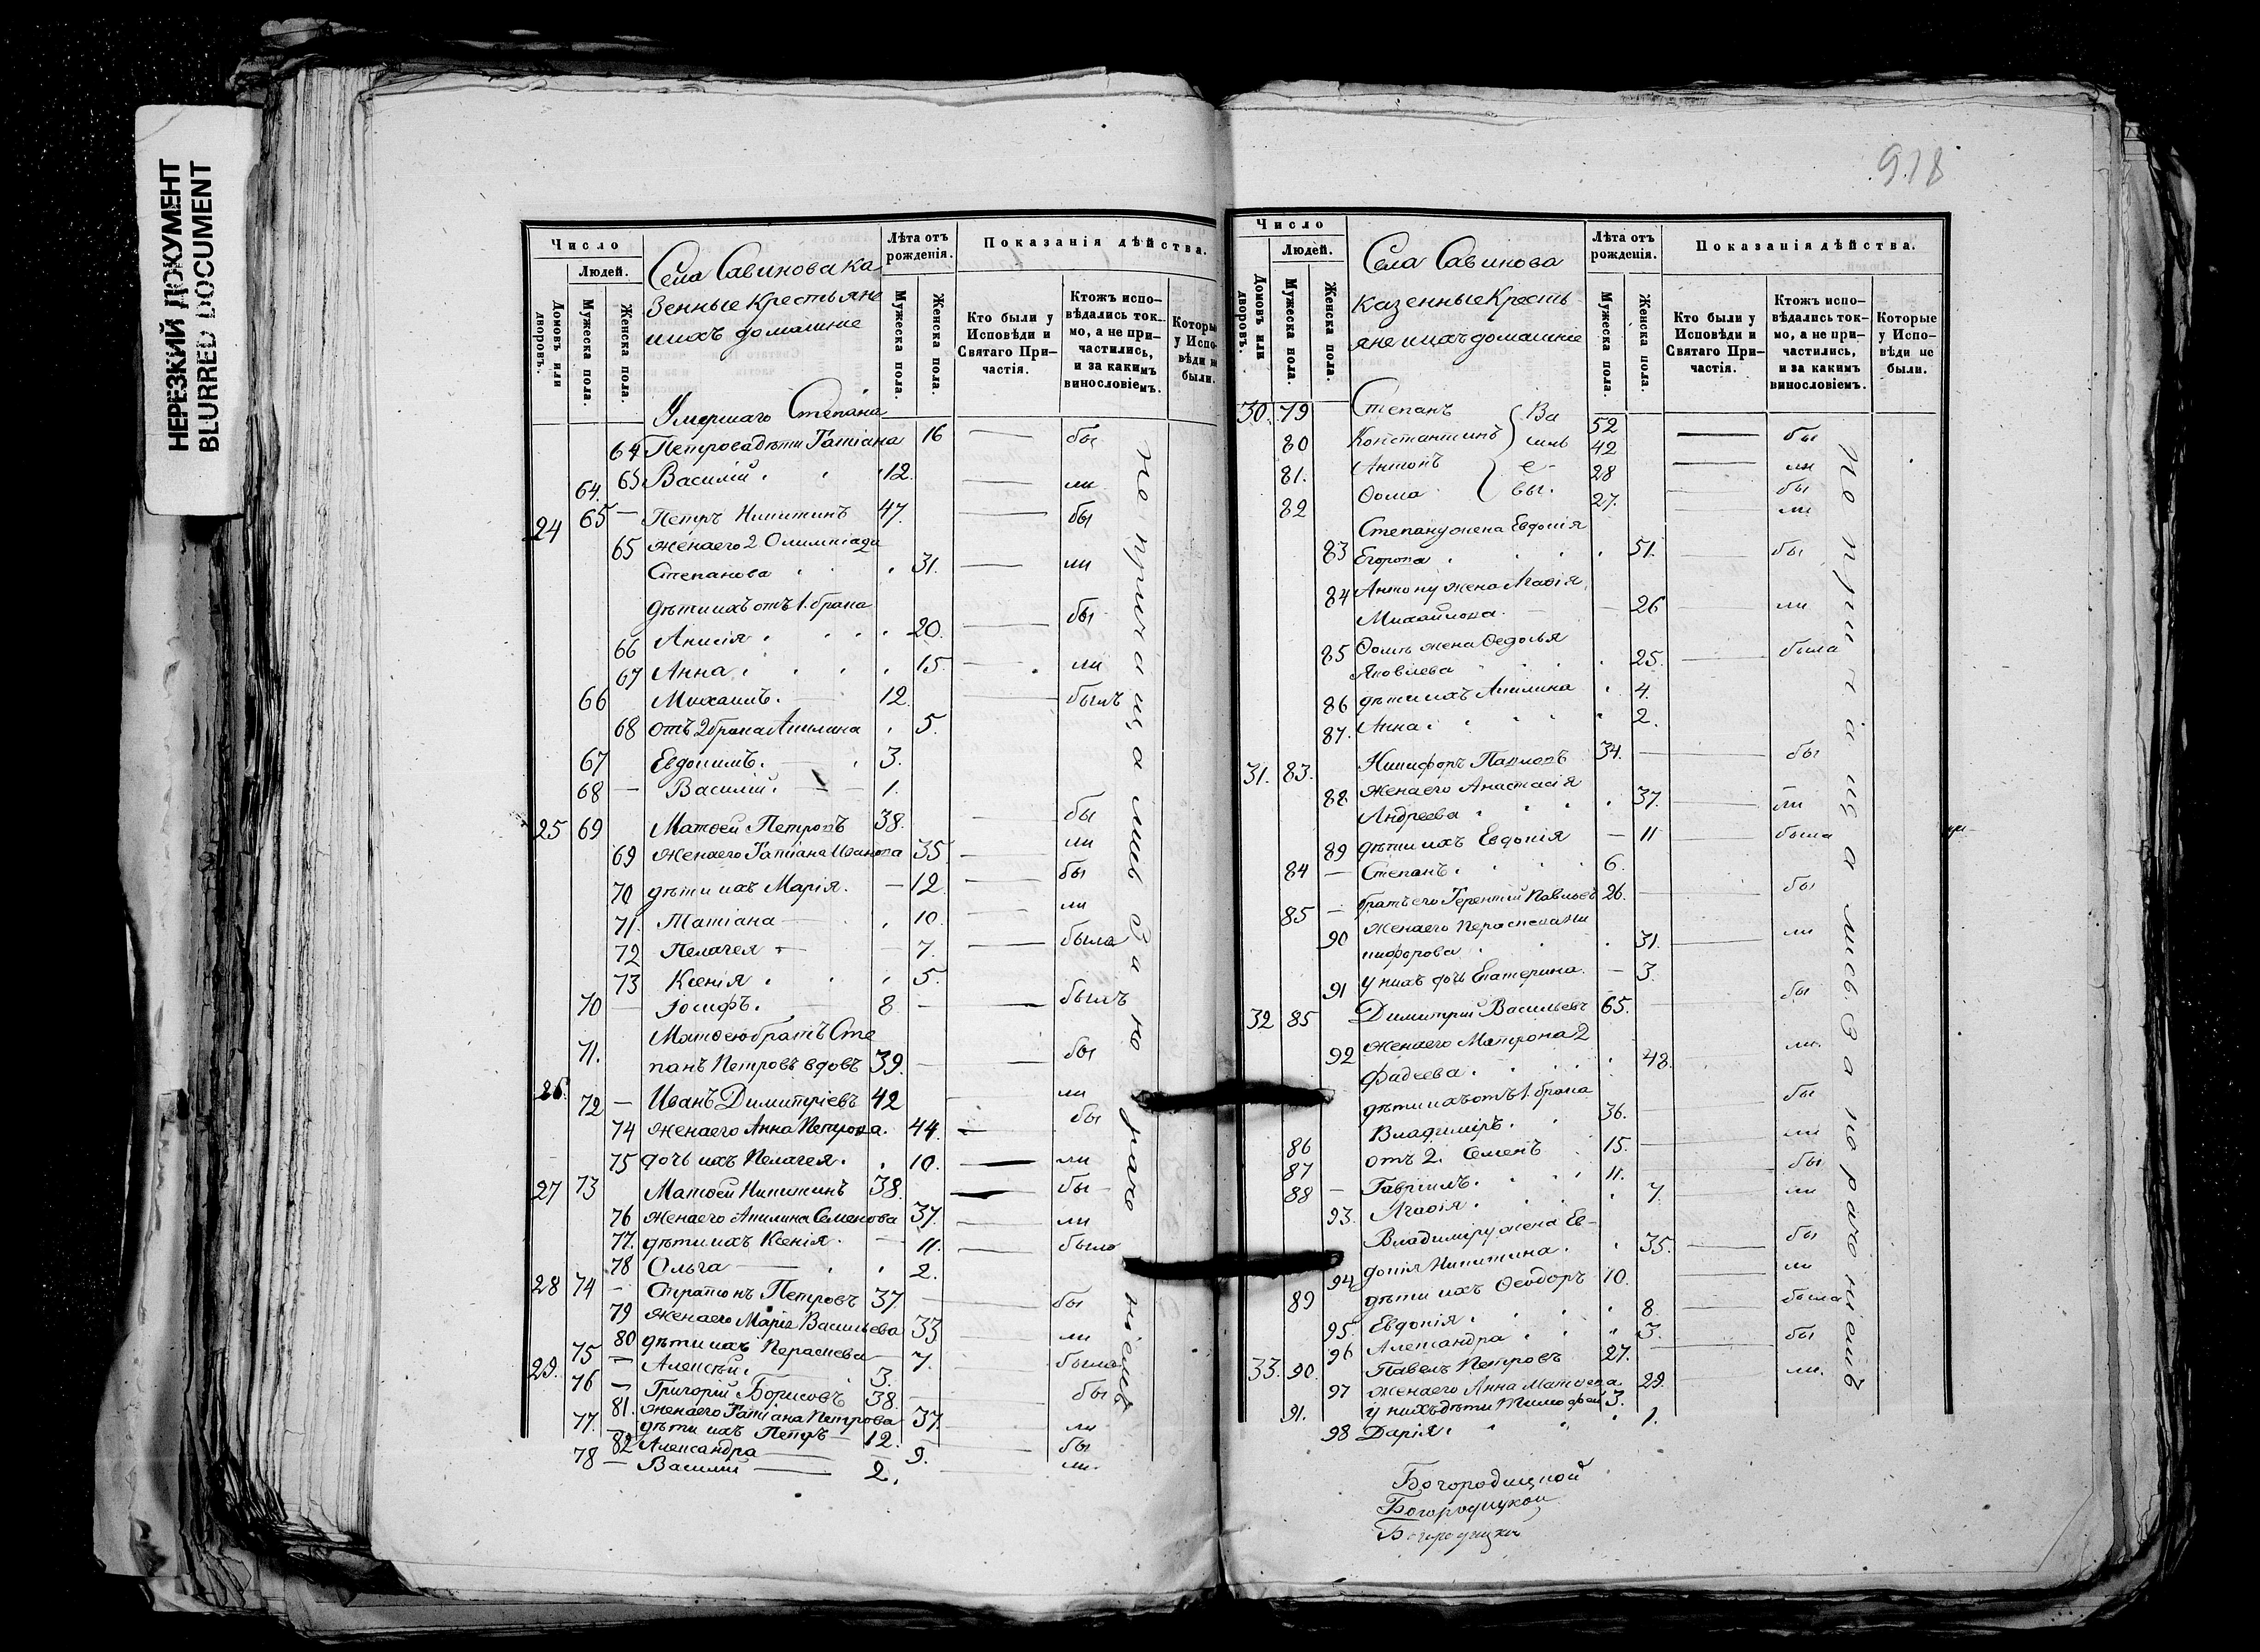 НЕРЕЗКИЙ ДОКУМЕНТ
BLURRED DOCUMENT
918
Число
Людей.
Домовъ или дворовъ.
Мужеска пола.
Женска пола.
Села Савинова ка
зенные Крестьяне
ихъ домашніе
Лѣта отъ рожденія.
Мужеска пола.
Женска пола.
Показанія дѣйства.
Кто были у Исповѣди и Святаго Причастія.
Ктожъ исповѣдались токмо, а не причастились, и за какимъ винословіемъ.
Которые у Исповѣди не были.
Умершаго Степана
64 Петрова дѣти Татіана 16 бы
64. 65 Василій 12. ли
24 65 — Петръ Никитинъ 47. бы
65 жена его 2 Олимпіада
Степанова 31. ли
дѣти ихъ отъ 1. брака
66 Анисія 20. бы
67 Анна 15. ли
66 Михаилъ. 12. былъ
68 отъ 2 брака Акилина 5.
67 Евдокимъ. 3.
68 — Василій. 1.
25 69 Матѳей Петровъ 38. бы
69 жена его Татіана Иванова 35. ли
70 дѣти ихъ Марія. — 12. бы
71. Татіана 10. ли
72 Пелагея 7. была
73 Ксенія 5.
70 — Іосифъ. 8. былъ
Матѳею братъ Сте
71. панъ Петровъ вдовъ 39. бы
26. 72 — Иванъ Димитріевъ 42 ли
74 жена его Анна Петрова. 44. бы
75 дочь ихъ Пелагея. 10. ли
27 73 Матѳей Никитинъ 38. бы
76 жена его Акилина Семенова 37. ли
77. дѣти ихъ Ксенія. — 11. была
78 Ольга 2.
28 74 — Стратонъ Петровъ 37. бы
79 жена его Марія Васильева 33 ли
80 дѣти ихъ Параскева 7. была
75 — Алексѣй. 3.
29. 76 — Григорій Борисовъ 38. бы
81. жена его Татіана Петрова 37. ли
77. — дѣти ихъ Петръ — 12. бы
82 Александра 9. ли.
78 — Василій 2.
не причащались за нераченіемъ
Число
Людей.
Домовъ или дворовъ.
Мужеска пола.
Женска пола.
Села Савинова
казенные Кресть
яне и ихъ домашніе
Лѣта отъ рожденія.
Мужеска пола.
Женска пола.
Показанія дѣйства.
Кто были у Исповѣди и Святаго Причастія.
Ктожъ исповѣдались токмо, а не причастились, и за какимъ винословіемъ.
Которые у Исповѣди не были.
30. 79 Степанъ Ва 52 бы
80 Константинъ силь 42 ли
81. Антонъ е- 28 бы
82 Ѳома вы. 27. ли
Степану жена Евдокія
83 Егорова 51. бы
84 Антону жена Агаѳія
Михайлова. — 26 ли
85 Ѳомы жена Ѳедосья
Яковлева 25. была
86 дѣти ихъ Акилина 4.
87. Анна. 2.
31. 83. Никифоръ Павловъ 34. бы
88 жена его Анастасія
Андреева 37. ли
89 дѣти ихъ Евдокія — 11 была
84 — Степанъ. 6.
85 — братъ его Терентій Павловъ 26. бы
90 жена его Параскева Ни
кифорова 31. ли
91 у нихъ дочь Екатерина. — 3.
32 85 Димитрій Васильевъ 65. бы
92 жена его Матрона 2
Фадеева. 48. ли.
дѣти ихъ отъ 1. брака
86 Владиміръ. 36. бы
87 отъ 2. Семенъ 15. ли
88 — Гавріилъ. 11. бы
93. Агаѳія. 7. ли
Владиміру жена Ев-
94 докія Никитина. 35. бы
89 дѣти ихъ Ѳеодоръ 10. ли
95. Евдокія. 8. была
96 Александра 3.
33. 90. Павелъ Петровъ 27. бы
97 жена его Анна Матвеева 29. ли.
91. у нихъ дѣти Тимоѳей 3.
98 Дарія. 1.
не причащались. За нераченіемъ
Богородицкой
Богородицкой
Богородицкой